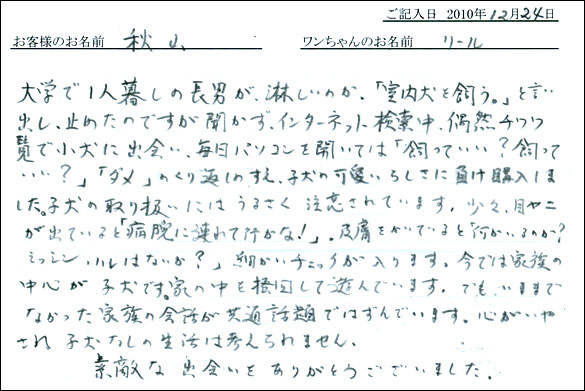 ご記入日 2010年12月24日
お客様のお名前 秋山 ワンちゃんのお名前 リール
大学で1人暮しの長男が、淋しいのか、「室内犬を飼う。」と言い
出し、止めたのですが聞かず、インターネット検索中、偶然チワワ
覧で小犬に出会い、毎日パソコンを開いては「飼っていい?飼って
いい?」「ダメ」のくり返しのすえ、子犬の可愛いらしさに負け購入しま
した。子犬の取り扱いにはうるさく注意されています。少々、目ヤニ
が出ていると「病院に連れて行かな!」。皮膚をかいていると「何かいるのか?
シッシン、ハレはないか?」細かいチェックが入ります。今では家族の
中心が子犬です。家の中を掻回して遊んでいます。でも、いままで
なかった家族の会話が共通話題ではずんでいます。心がいや
され子犬なしの生活は考えられません。
素敵な出会いをありがとうございました。